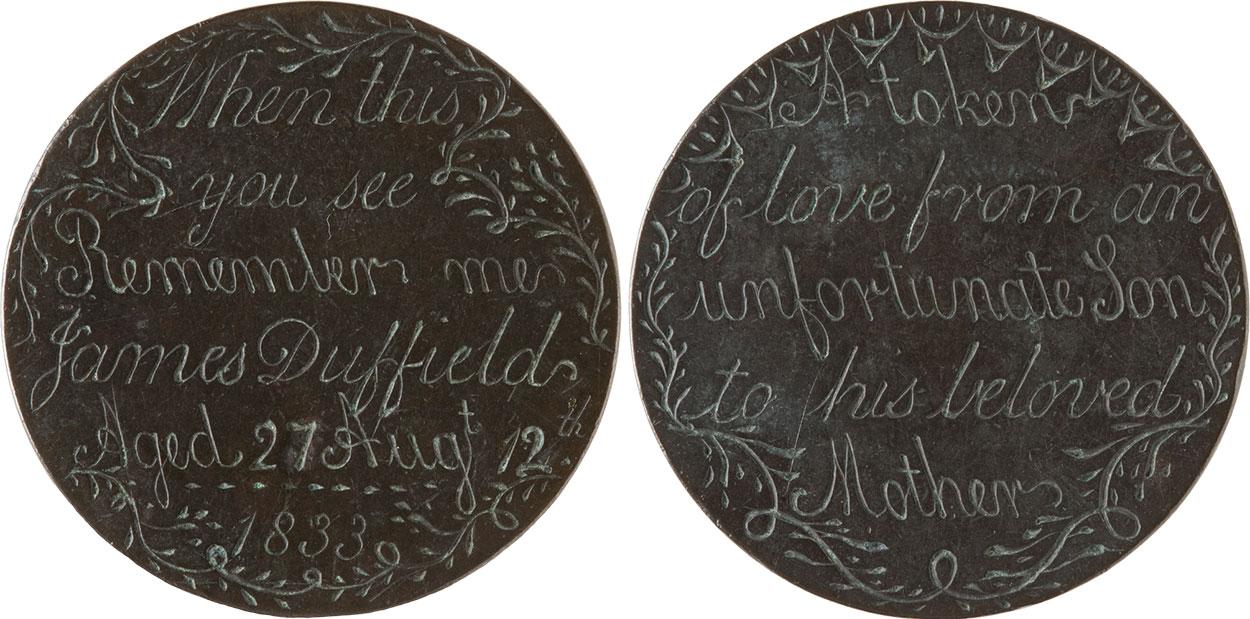 When this
you see
Remember me
James Duffield
Aged 27 Augt 12th
1833
A token
of love from an
unfortunate Son
to his beloved
Mother